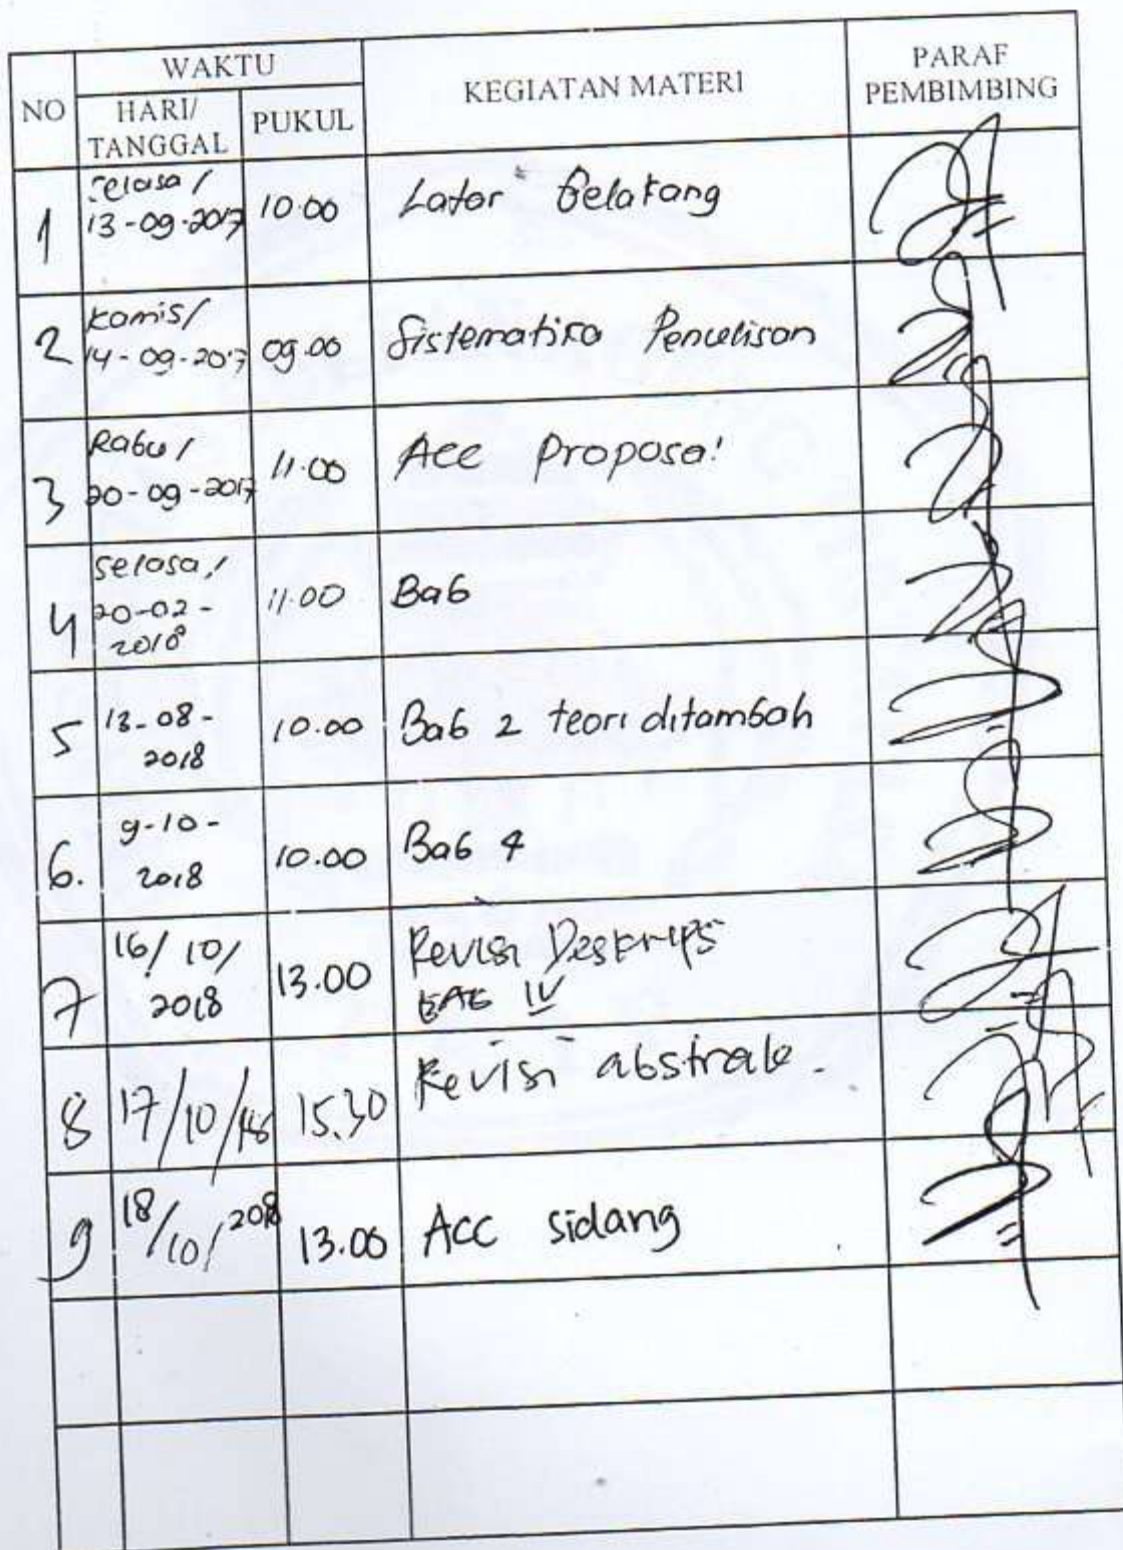 NO WAKTU KEGIATAN MATERI PARAF PEMBIMBING
HARI/ TANGGAL PUKUL
1 Selasa / 13-09-2017 10.00 Latar Belakang
2 Kamis/ 14-09-2017 09.00 Sistematika Penulisan
3 Rabu / 20-09-2017 11.00 Acc Proposal
4 Selasa / 20-02-2018 11.00 Bab
5 13-08-2018 10.00 Bab 2 teori ditambah
6. 9-10-2018 10.00 Bab 4
7 16/10/2018 13.00 Revisi Deskripsi
BAB IV
8 17/10/18 15.30 Revisi abstrak.
9 18/10/2018 13.00 Acc sidang